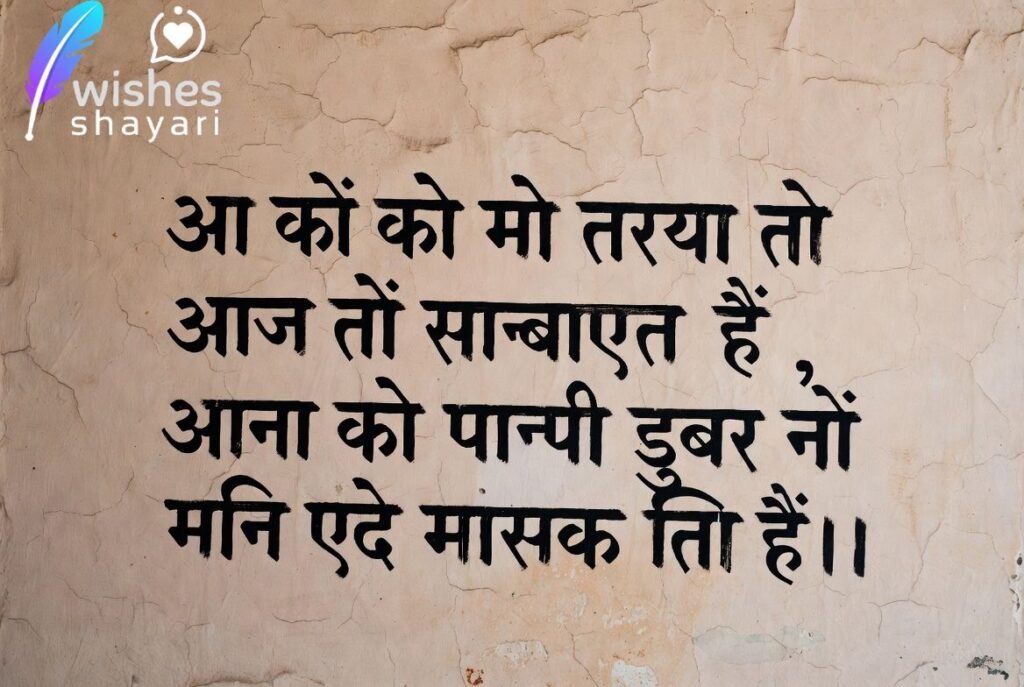 wishes
shayari
आ कों को मो तरया तो
आज तों सान्बाएत हैं ,
आना को पान्पी डुबर नों
मनि एदे मासक तिा हैं।।